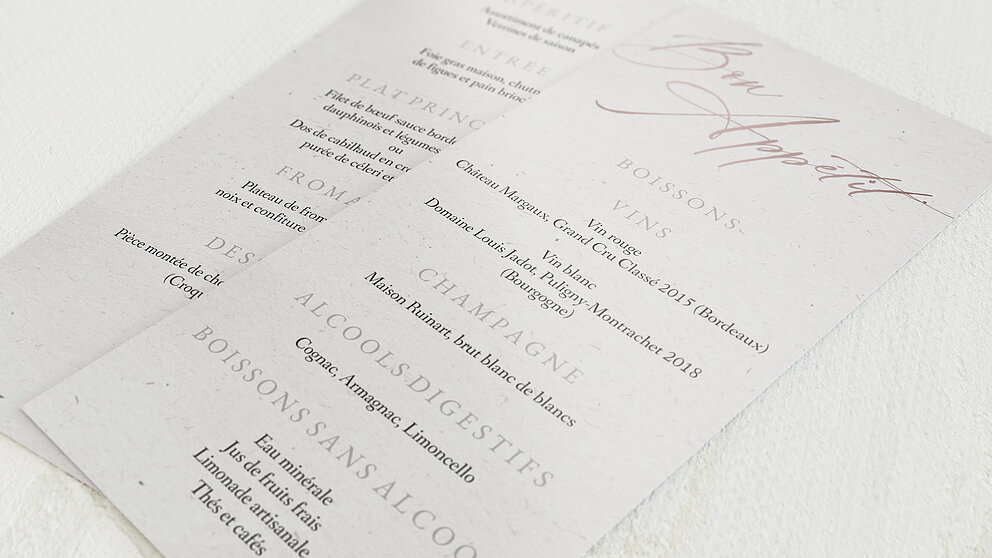 APERITIF
Assortiment de canapés
Verrines de saison
ENTRÉE
Foie gras maison, chutn
de figues et pain brioc
PLAT PRINC
Filet de bœuf sauce borde
dauphinois et légumes
ou
Dos de cabillaud en cro
purée de céleri et
FROMA
Plateau de from
noix et confiture
DES
Pièce montée de cho
(Croqu
Bon
Appétit
BOISSONS
VINS
Vin rouge
Château Margaux, Grand Cru Classé 2015 (Bordeaux)
Vin blanc
Domaine Louis Jadot, Puligny-Montrachet 2018
(Bourgogne)
CHAMPAGNE
Maison Ruinart, brut blanc de blancs
ALCOOLS DIGESTIFS
Cognac, Armagnac, Limoncello
BOISSONS SANS ALCOO
Eau minérale
Jus de fruits frais
Limonade artisanale
Thés et cafés